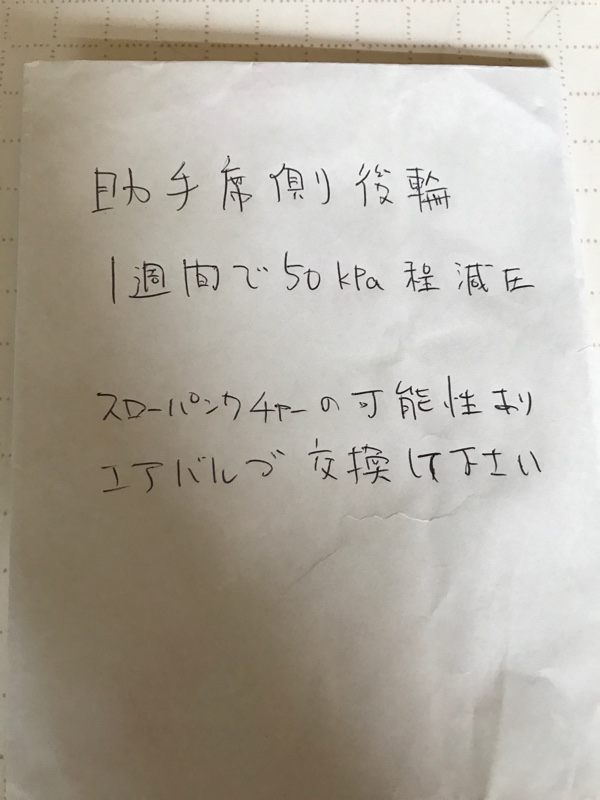 助手席側後輪
1週間で50kPa程減圧
スローパンクチャーの可能性あり
エアバルブ交換して下さい